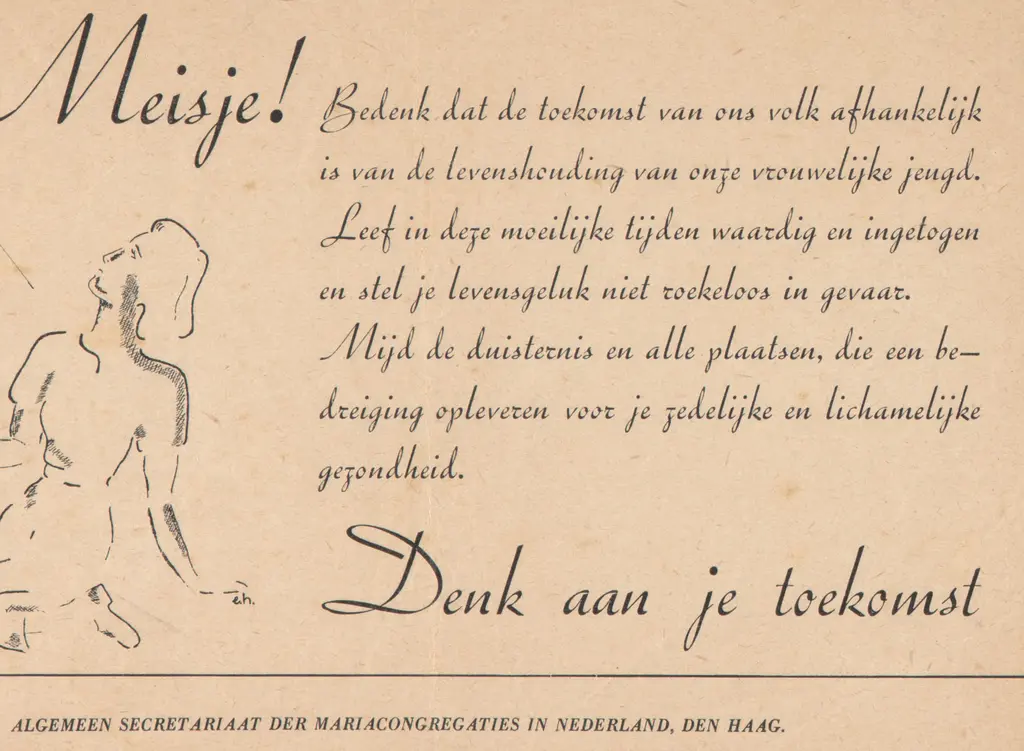 Meisje!
Bedenk dat de toekomst van ons volk afhankelijk
is van de levenshouding van onze vrouwelijke jeugd.
Leef in deze moeilijke tijden waardig en ingetogen
en stel je levensgeluk niet roekeloos in gevaar.
Mijd de duisternis en alle plaatsen, die een be-
dreiging opleveren voor je zedelijke en lichamelijke
gezondheid.
Denk aan je toekomst
e.h.
ALGEMEEN SECRETARIAAT DER MARIACONGREGATIES IN NEDERLAND, DEN HAAG.